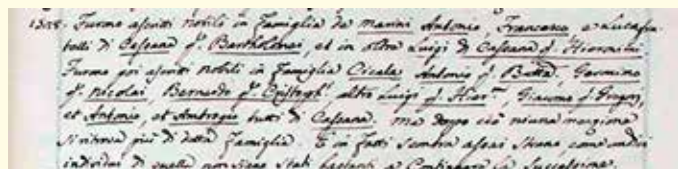 1528. Furono ascritti nobili in Famiglia de Marini Antonio, Francesco, e Luca fra-
telli di Cassana q. Bartholomei, et in oltre Luigi di Cassana q. Hieronimi
Furono poi ascritti nobili in Famiglia Cicala Antonio q. Batta, Geronimo
q. Nicolai, Bernardo q. Cristoph., altro Luigi q. Hier.mi, Giacomo q. Gregorj,
et Antonio, et Ambrogio tutti di Cassana. Ma doppo ciò niuna menzione
si ritrova più di detta Famiglia. E in fatti sembra assai strano come undici
individui di quella non siano stati bastanti a Continuare la Successione.